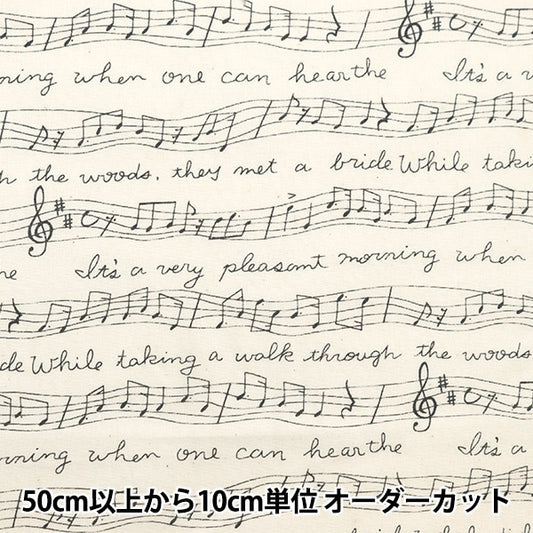 ning when one can hear the It's a v
h the woods, they met a bride While taki
ne It's a very pleasant morning when
de While taking a walk through the woods
rning when one can hear the It's a
50cm以上から10cm単位 オーダーカット